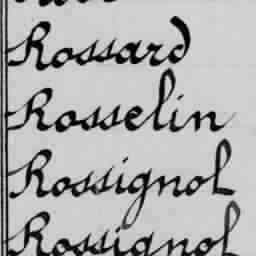 Rossard
Rosselin
Rossignol
Rossignol